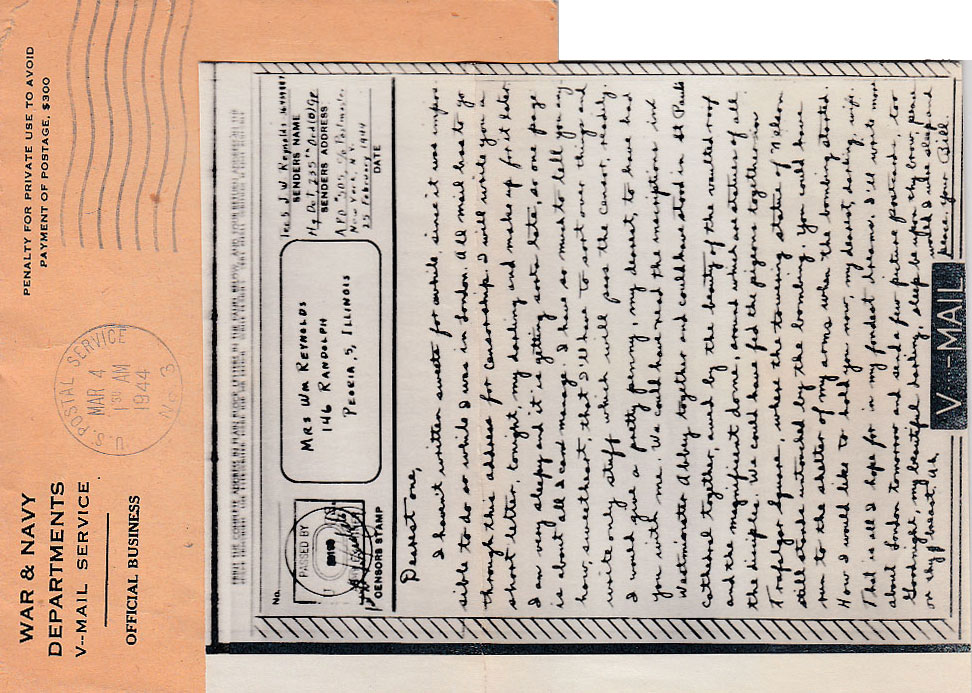 WAR & NAVY
DEPARTMENTS
V--MAIL SERVICE
OFFICIAL BUSINESS
U.S. POSTAL SERVICE
MAR 4
1 30 AM
1944
No 3
PENALTY FOR PRIVATE USE TO AVOID
PAYMENT OF POSTAGE, $300
PRINT THE COMPLETE ADDRESS IN PLAIN BLOCK LETTERS IN THE PANEL BELOW, AND YOUR RETURN ADDRESS IN THE SPACE PROVIDED
No.
PASSED BY
CENSORS STAMP
MRS WM REYNOLDS
146 RANDOLPH
PEORIA, 5, ILLINOIS
Tec 5 J W Reynolds
SENDERS NAME
Hq Det 235th Ord (B) Gp
SENDERS ADDRESS
APO #505 c/o Postmaster
New York, N.Y.
25 February 1944
DATE
Dearest one,
I haven't written sweets for awhile since it was impos
sible to do so while I was in London. All mail has to go
through this address for censorship. I will write you a
short letter, tonight, my darling and make up for it later.
I am very sleepy and it is getting sorta late, so one page
is about all I can manage. I have so much to tell you any
how, sweetheart, that I'll have to sort over things and
write only stuff which will pass the censor, ready.
I would give a pretty penny, my dearest, to have had
you with me. We could have read the inscriptions in
Westminster Abbey together and could have stood in St Pauls
Cathedral together, awed by the beauty of the vaulted roof
and the magnificent dome, around which are statues of all
the disciples. We could have fed the pigeons together in
Trafalgar Square, where the towering statue of Nelson
still stands untouched by the bombing. You could have
run to the shelter of my arms when the bombing started.
How I would like to hold you now, my dearest, darling, wife.
That is all I hope for in my fondest dreams. I'll write more
about London tomorrow and send a few picture postcards, too
Goodnight, my beautiful darling, sleep be upon thy brow, peace
on thy breast, Ah, would I were sleep and
peace, your Bill.
V--MAIL